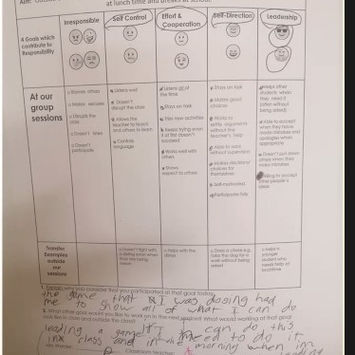 at lunch time and breaks at school.
A Goals which
contribute to
Responsibility
Irresponsible
Self Control
Effort &
Cooperation
Self-Direction
Leadership
At our
group
sessions
Blames others
Makes excuses
Disrupts the
class
Doesn't listen
Doesn't
participate
Listens well
Doesn't
disrupt the class
Allows the
teacher to teach
and others to learn
Controls
language
Listens all of
the time
Stays on task
Tries new activities
Keeps trying even
if at first doesn't
succeed
Works well with
others
Shows
respect to others
Stays on task
Makes good
choices
Works to
settle arguments
without the
teacher's help
Able to work
without supervision
Makes decisions/
choices for
themselves
Self-motivated
Participates fully
Helps other
students when
they need it
(often without
being asked)
Able to accept
when they have
made mistakes and
apologises when
appropriate
Doesn't put down
others when they
make mistakes
Willing to accept
other people's
ideas
Transfer
Examples
outside
our
sessions
Helps with the
dishes
without being
asked
Helps a
younger
student who
need help at
lunchtime
1. Explain why you consider that you participated at that goal today
the game that I was doing had
me to show all of what I can do
2. What other goal would you like to work on in the next session? What would working at that goal
look like in class and outside the class?
leading a game. I can do this
in class and in the morning when im
Classroom teacher: